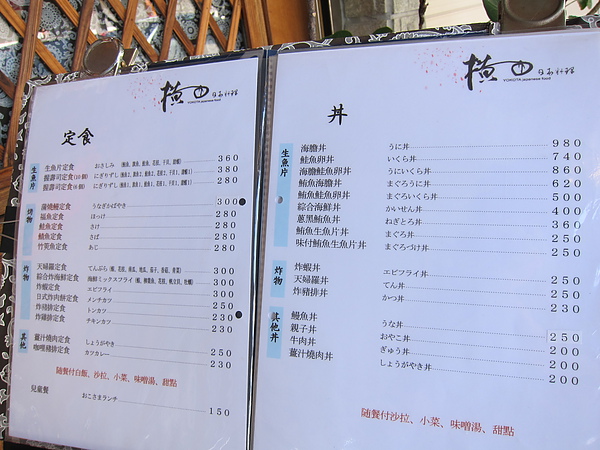 横田 日本料理
YOKOTA japanese food
定食
生魚片
生魚片定食 おさしみ 360
握壽司定食(10個) にぎりずし 380
握壽司定食(6個) にぎりずし 280
烤物
蒲燒鰻定食 うなぎかばやき 300
福魚定食 ほっけ 280
鮭魚定食 さけ 280
鯖魚定食 さば 280
竹筴魚定食 あじ 280
炸物
天婦羅定食 てんぷら 300
綜合炸海鮮定食 海鮮ミックスフライ 300
炸蝦定食 エビフライ 300
日式炸肉餅定食 メンチカツ 250
炸豬排定食 トンカツ 230
炸雞排定食 チキンカツ 230
其他
薑汁燒肉定食 しょうがやき 250
咖哩豬排定食 カツカレー 230
隨餐付白飯、沙拉、小菜、味噌湯、甜點
兒童餐 おこさまランチ 150
横田 日本料理
YOKOTA japanese food
丼
生魚片
海膽丼 うに丼 980
鮭魚卵丼 いくら丼 740
海膽鮭魚卵丼 うにいくら丼 860
鮪魚海膽丼 まぐろうに丼 620
鮪魚鮭魚卵丼 まぐろいくら丼 500
綜合海鮮丼 かいせん丼 400
蔥黑鮪魚丼 ねぎとろ丼 360
鮪魚生魚片丼 まぐろ丼 250
味付鮪魚生魚片丼 まぐろづけ丼 250
炸物
炸蝦丼 エビフライ丼 250
天婦羅丼 てん丼 250
炸豬排丼 かつ丼 230
其他丼
鰻魚丼 うな丼 250
親子丼 おやこ丼 200
牛肉丼 ぎゅう丼 200
薑汁燒肉丼 しょうがやき丼 200
隨餐付沙拉、小菜、味噌湯、甜點